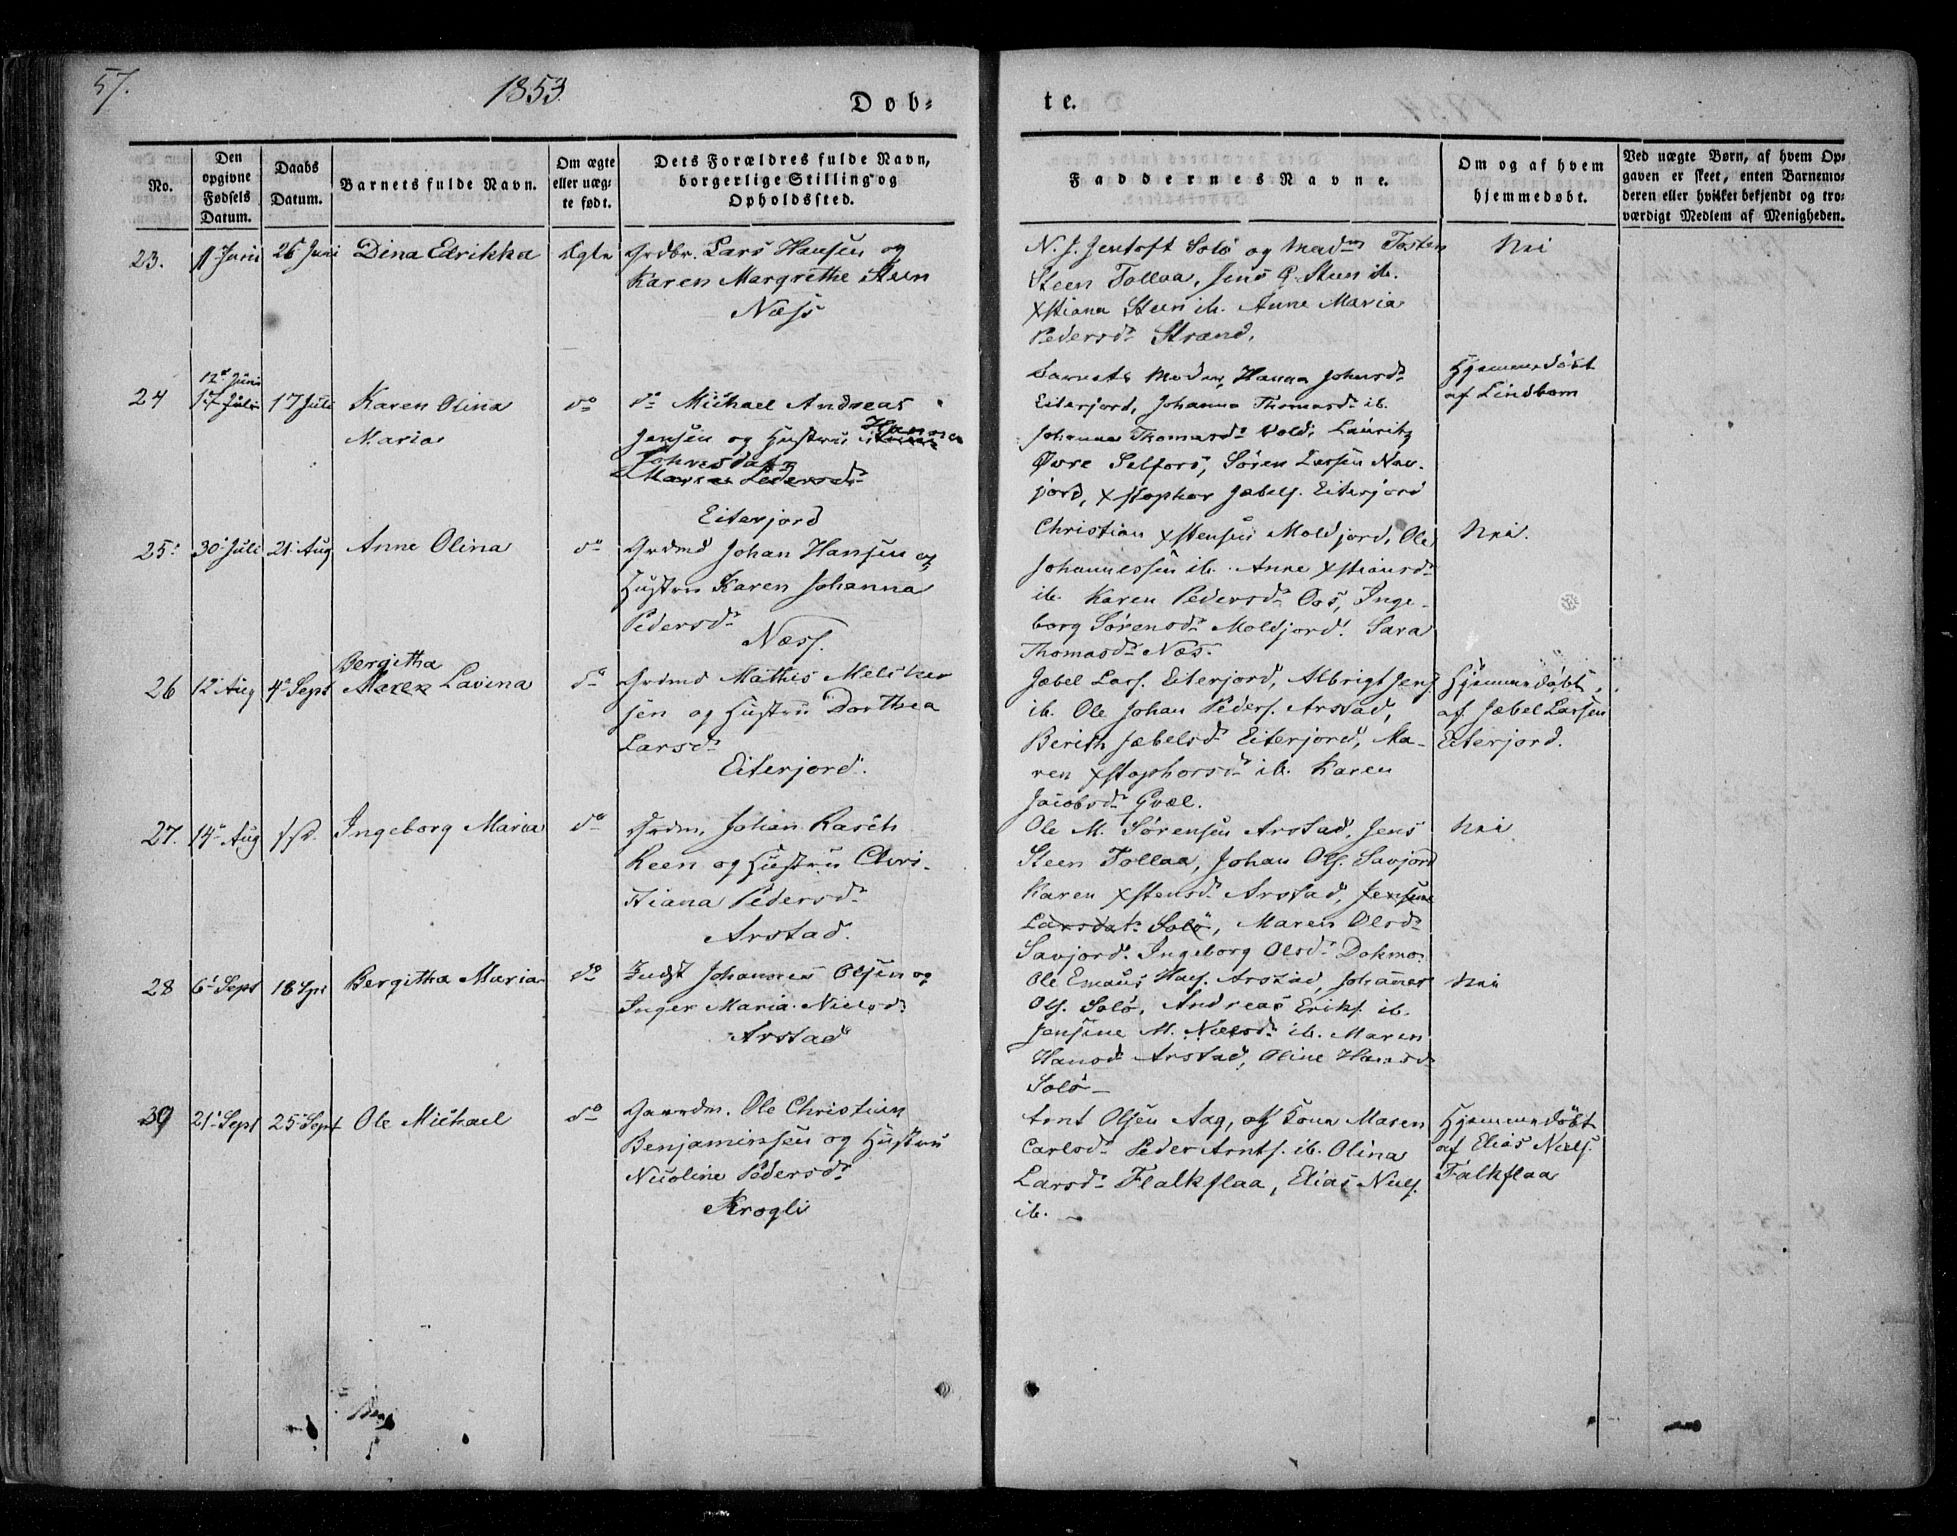 57.
1853
Døb-
te.
No.
Den opgivne Fødsels Datum.
Daabs Datum.
Barnets fulde Navn.
Om ægte eller uægte født.
Dets Forældres fulde Navn, borgerlige Stilling og Opholdssted.
Faddernes Navne.
Om og af hvem hjemmedøbt.
Ved uægte Børn, af hvem Opgaven er skeet, enten Barnemoderen eller hvilket bekjendt og troværdigt Medlem af Menigheden.
23. 1 Juni 26 Juni Dina Edrikka Ægte
Grdbr. Lars Hansen og
Karen Margrethe Steen
Næss
N. J. Jentoft Solö og Mad.
Steen Tollaa, Jens G. Steen ib.
Xstiana Steen ib. Anne Maria
Pedersd. Strand.
Nei
24 12 Juni 17 Juli 17 Juli Karen Olina
Maria
do
do Michael Andreas
Jensen og Hustru Hanna
Johnsdatr
Maria Pedersd.
Eiterjord
Barnets Moder, Hanna Johnsd.
Eiterjord, Johanna Thomasd. ib.
Johanna Thomasd. Vold, Lauritz
Øvre Selfors, Sören Larsen Nav-
jord, Xstopher Jæbels. Eiterjord
Hjemmedöbt
af Lindbom
25. 30 Juli 21 Aug Anne Olina do
Grdmd Johan Hansen og
Hustru Karen Johanna
Pedersd.
Næss.
Christian Xstensen Moldjord, Ole
Johannessen ib. Anne Xstiansd.
ib. Karen Pedersd. Oos, Inge-
borg Sörensd. Moldjord. Sara
Thomasd. Næs.
Nei.
26 12 Aug 4 Sept Bergitha
Maren Lavina do
Grdmd Mathis Melcker
sen og Hustru Dorthea
Larsd.
Eiterjord.
Jæbel Lars. Eiterjord, Albrigt Jens.
ib. Ole Johan Peders. Arstad,
Berith Jæbelsd. Eiterjord, Ma-
ren Xstophersd. ib. Karen
Jacobsd. Qvæl.
Hjemmedöbt
af Jæbel Larsen
Eiterjord.
27. 14 Aug Ingeborg Maria do
Grdm. Johan Rasch
Reen og Hustru Chris-
tiana Pedersd.
Arstad.
Ole M. Sörensen Arstad, Jens
Steen Tollaa, Johan Ols. Savjord
Karen Xstensd. Arstad, Jensine
Larsdat. Solö, Maren Olsd.
Savjord. Ingeborg Olsd. Dokmo.
Nei
28 6 Sept 18 Spt Bergitha Maria do
Indst Johannes Olsen og
Inger Maria Nielsd.
Arstad
Ole Emaus Hans. Arstad, Johannes
Ols. Solö, Andreas Eriks. ib.
Jensine M. Nielsd. ib. Maren
Hansd. Arstad, Oline Hansd.
Solö
Nei
39 21 Sept 25 Sept Ole Michael do
Gaardm. Ole Christian
Benjaminsen og Hustru
Nicoline Pedersd.
Krogli
Arnt Olsen Aag, og Kone Maren
Carlsd. Peder Arnts. ib. Olina
Larsd. Flalkflaa, Elias Niels.
ib.
Hjemmedöbt
af Elias Niels.
Falkflaa